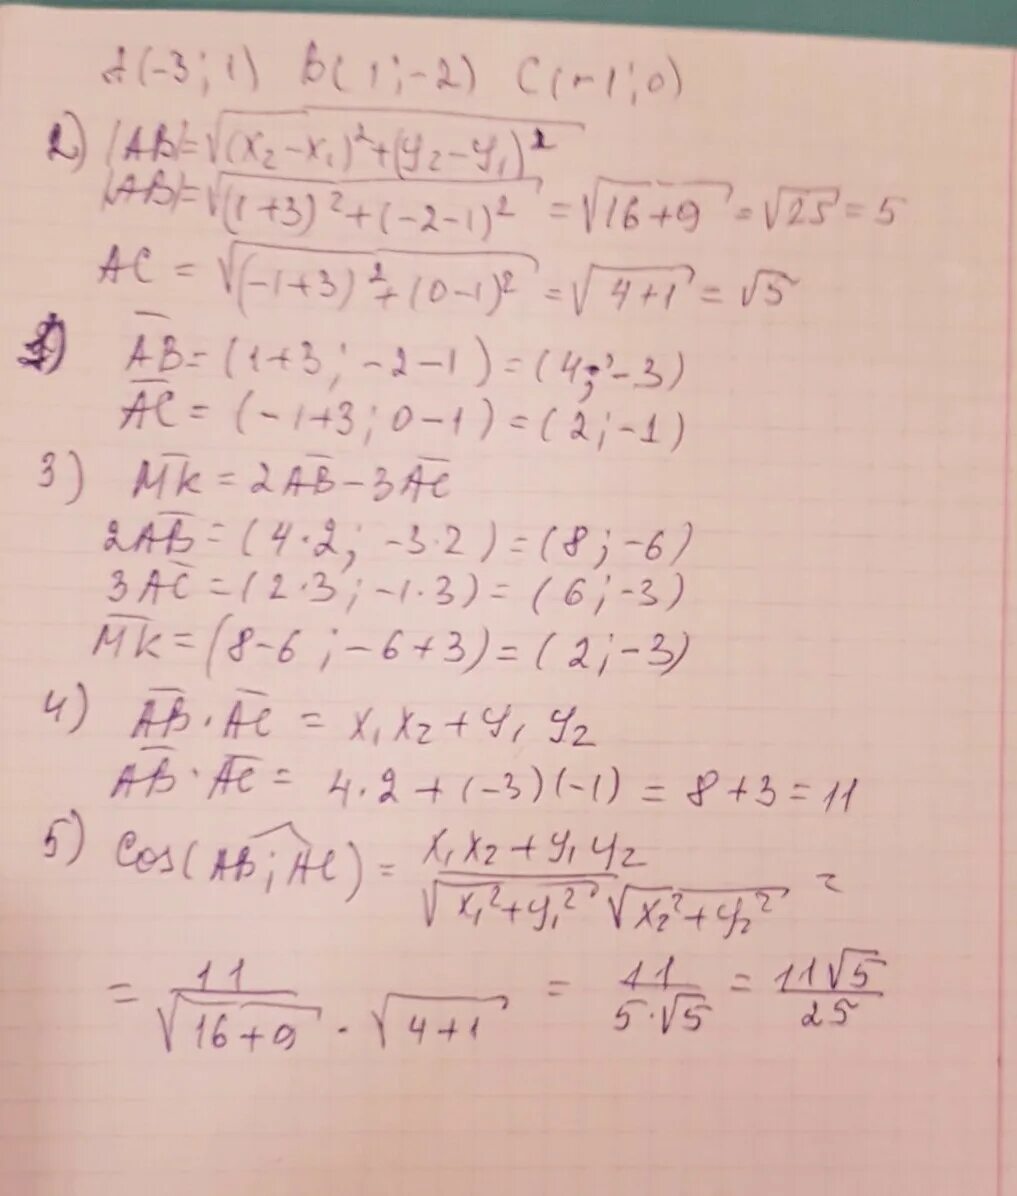 A(-3; 1) B(1; -2) C(-1; 0)
2) |AB| = √((x₂-x₁)² + (y₂-y₁)²)
|AB| = √((1+3)² + (-2-1)²) = √(16+9) = √25 = 5
AC = √((-1+3)² + (0-1)²) = √(4+1) = √5
1) A̅B̅ = (1+3; -2-1) = (4; -3)
A̅C̅ = (-1+3; 0-1) = (2; -1)
3) M̅K̅ = 2A̅B̅ - 3A̅C̅
2A̅B̅ = (4·2; -3·2) = (8; -6)
3A̅C̅ = (2·3; -1·3) = (6; -3)
M̅K̅ = (8-6; -6+3) = (2; -3)
4) A̅B̅ · A̅C̅ = x₁x₂ + y₁y₂
A̅B̅ · A̅C̅ = 4·2 + (-3)(-1) = 8+3 = 11
5) Cos(AB; AC) = (x₁x₂ + y₁y₂) / (√(x₁²+y₁²) √(x₂²+y₂²)) =
= 11 / (√(16+9) · √(4+1)) = 11 / (5·√5) = 11√5 / 25